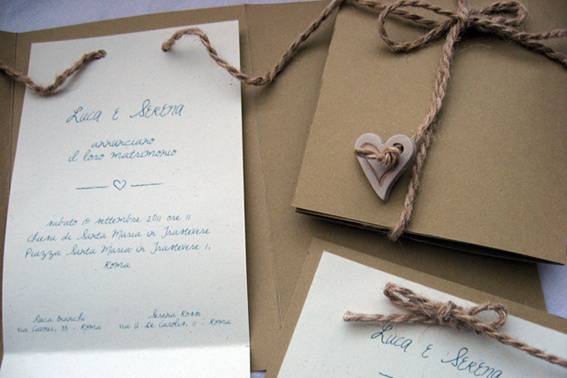 Luca E Serena
annunciano
il loro matrimonio
sabato 10 settembre 2011 ore 11
Chiesa di Santa Maria in Trastevere
Piazza Santa Maria in Trastevere 1,
Roma
Luca Bianchi
Serena Rossi
via Cavour, 33 - Roma
via G. De Carolis, 11 - Roma
Luca E Serena